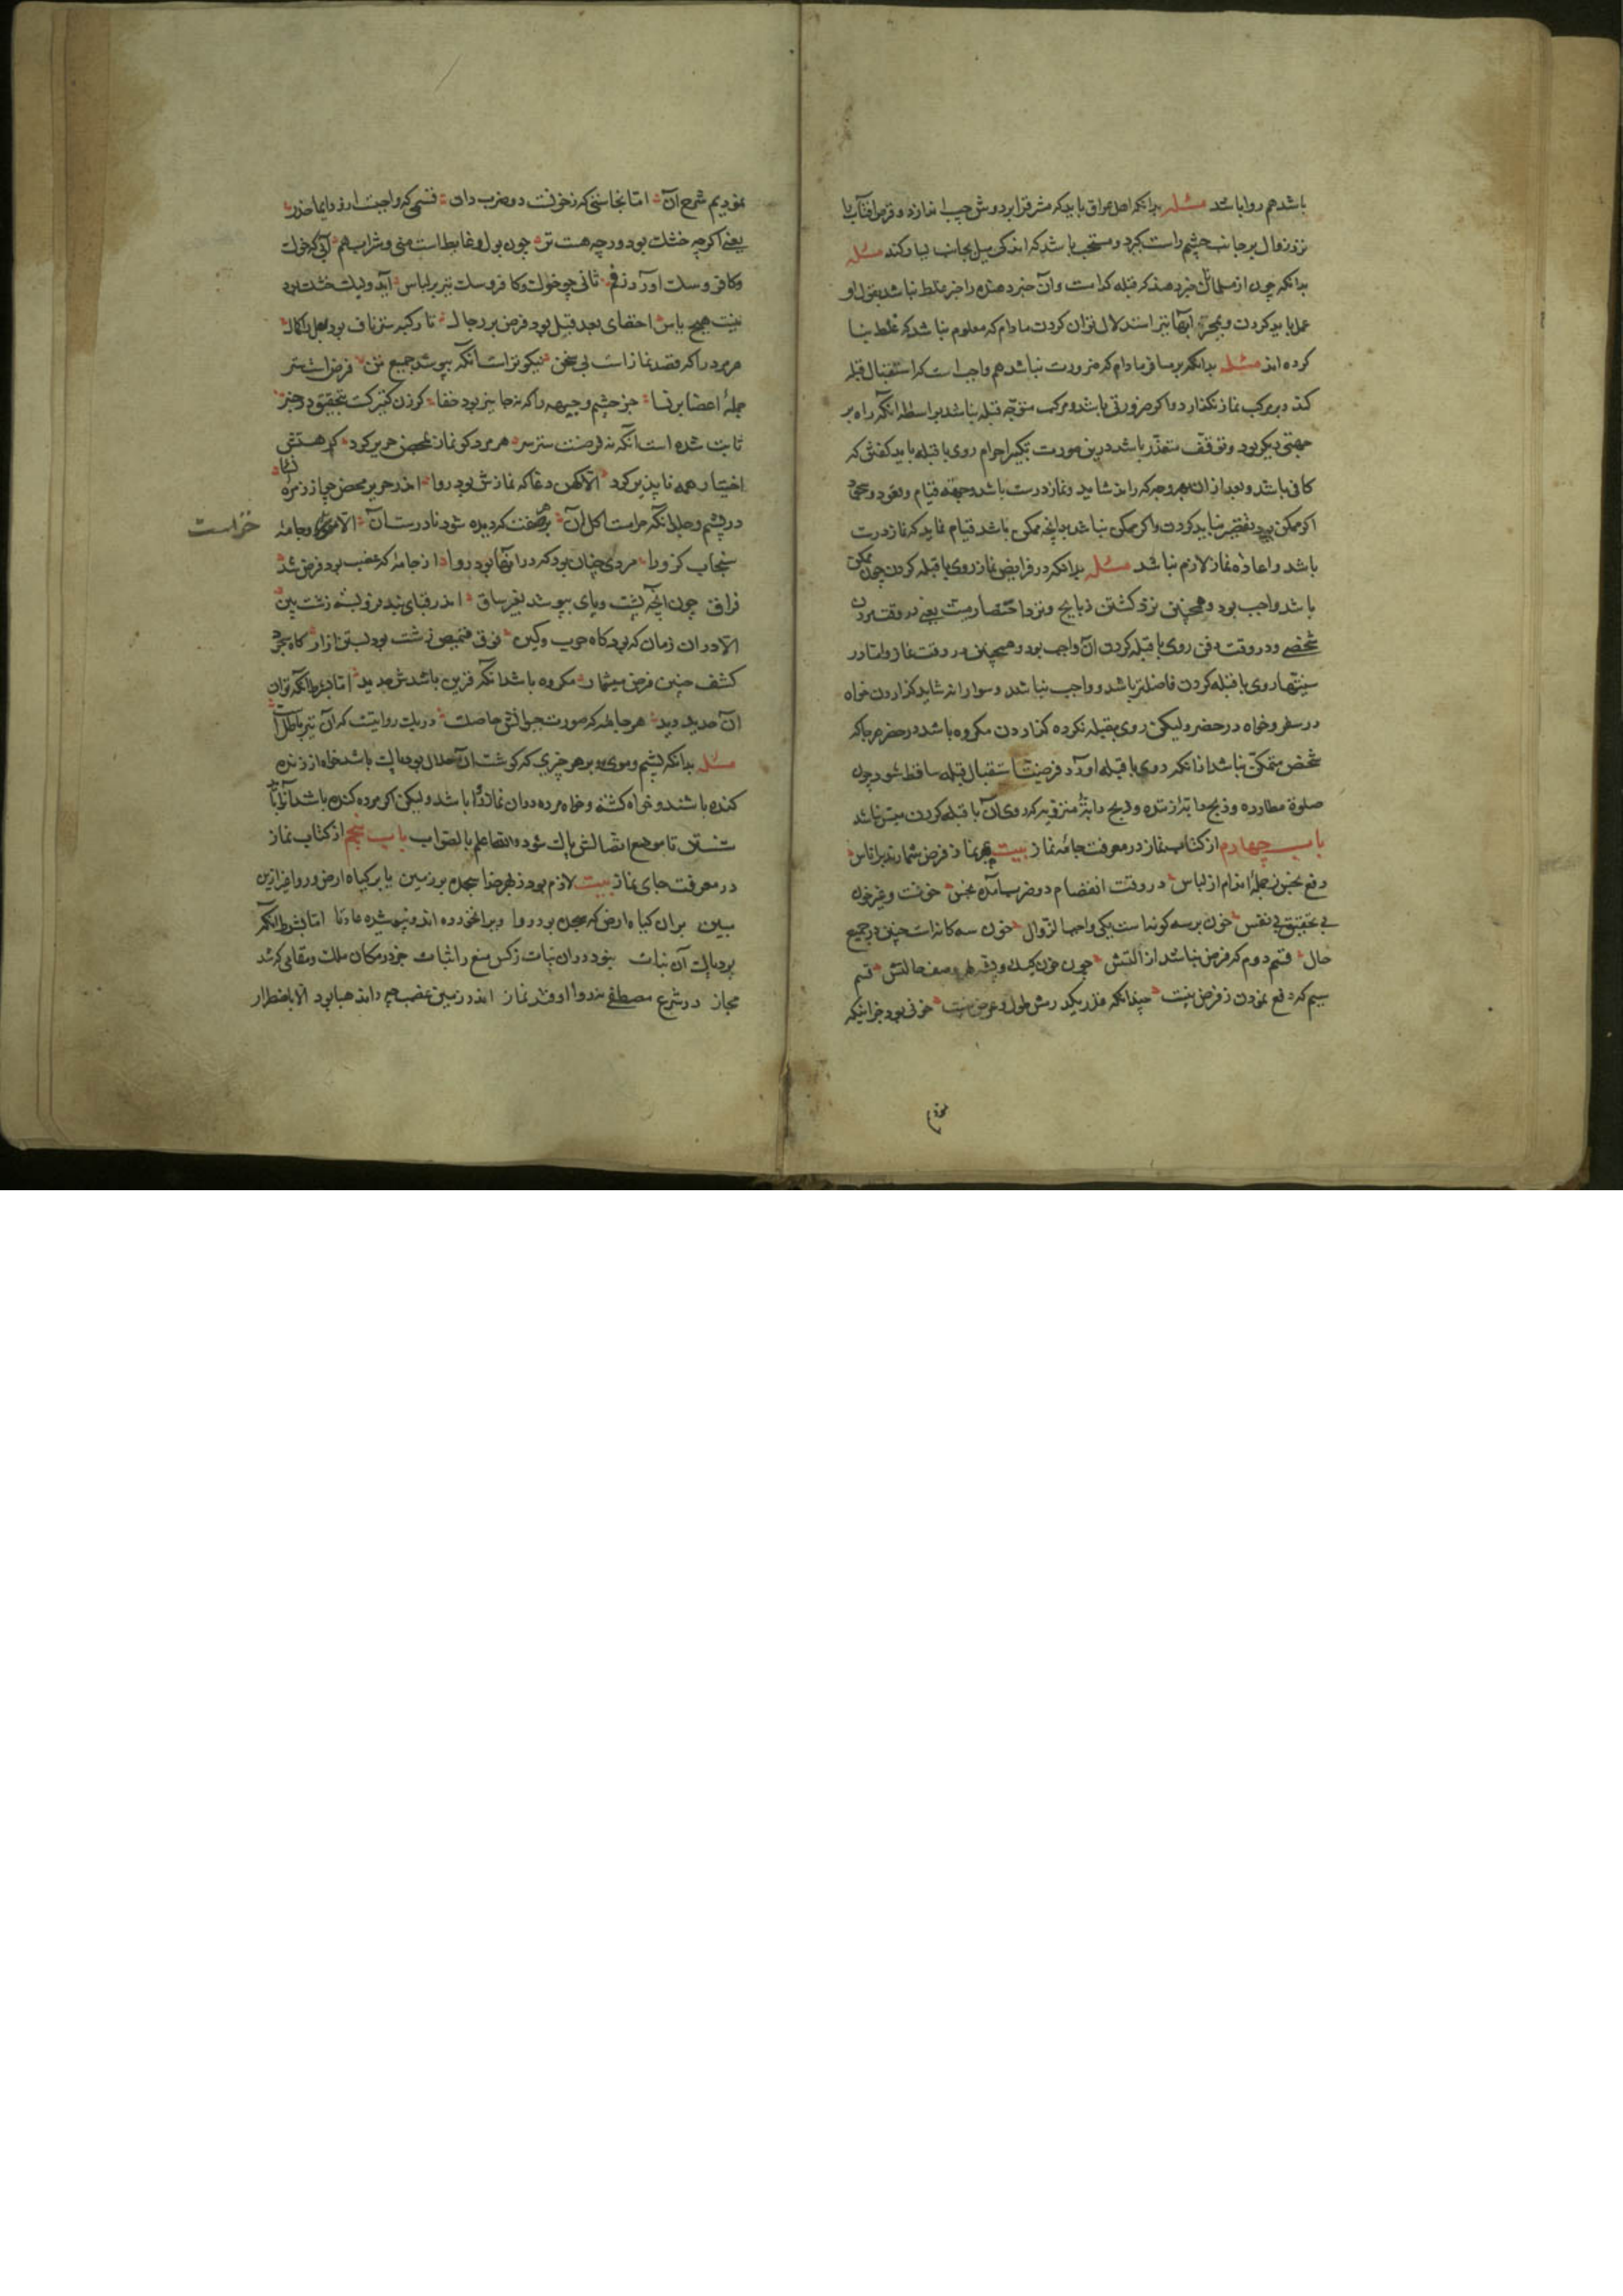 باشد هم روا باشد مسئله بدانکه اهل عراق باید که مشرق را بر دوش چپ اندازد و قرص آفتاب را
نزد زوال بر جانب چشم راست گیرد و مستحب باشد که اندکی میل بجانب یسار کند مسئله
بدانکه چون از مسلمانان خبر دهند که قبله کدامست وآن خبر دهنده را خبر غلط نباشد بقول او
عمل باید کردن و استدلال توان کردن مادام که معلوم نباشد که غلط بنا
کرده اند مسئله بدانکه بر مسافر مادام که ضرورت نباشد هم واجب است که استقبال قبله
کند و بر مرکب نماز نگذارد و اکر ضرورتی باشد و مرکب متوجه قبله نباشد بواسطه انکه راه بر
جهتی دیکر بود و توقف متعذر باشد درین صورت تکبیر احرام روی با قبله باید کفتن که
کافی باشد و بعد از ان بهر وجه که راند شاید و نماز درست باشد و جهة قیام وقعود و سجود
اکر ممکن بود تقصیر نباید کردن واکر ممکن نباشد بدانچه ممکن باشد قیام نماید که نماز درست
باشد واعاده نماز لازم نباشد مسئله بدانکه در فرایض نماز روی با قبله کردن چون ممکن
باشد واجب بود وهمچنین نزد کشتن ذبایح ونزد احتضار میت یعنی در وقت مردن
شخصی ودر وقت دفن روی با قبله کردن آن واجب بود وهمچنین در وقت نماز واما در
سنتها روی با قبله کردن فاضلتر باشد و واجب نباشد وسوار را نیز شاید کذاردن خواه
در سفر وخواه در حضر ولیکن روی بقبله نکرده کذاردن مکروه باشد در حضر هر جا که
شخص متمکن نباشد از انکه روی با قبله اورد فرضیت استقبال قبله ساقط شود چون
صلوة مطارده وذبح دابة که روی آن با قبله کردن میسر نباشد
باب چهارم از کتاب نماز در معرفت جامه نماز بیت بهر نماز فرض شمارند بر اناس
دفع نجس ز جمله اندام از لباس در وقت انفصام دو ضرب آمده نجس خونست وغیر خون
بی نفس خون بر سه کونه است یکی واجب الزوال خون سه کانه است چنین در جمیع
حال قسم دوم که فرض نباشد ازالتش چون خون کیک و پشه وصف حالتش قسم
سیم که دفع نمودن ز فرض نیست چندانکه قدر یکدرمش طول وعرض نیست خونی بود جز اینکه
نمودیم
نمودیم شرح آن اما نجاستی که نه خونست دو ضرب دان قسمی که واجبست ازو دایما حذر
یعنی اکر چه خشک بود ور چه هست تر چون بول وغایط است منی وشراب هم آنی که خوک
وکافر وسک آورد ز فم ثانی چو خوک وکافر وسک نیز بر لباس آید ولیک خشک بود
نیست هیچ باس اخفای بعد قبل بود فرض بر رجال تا رکبه ستر ناف بود فعل با کمال
هر مرد را که قصد نماز است بی سخن نیکوتر است آنکه بپوشد جمیع تن فرض است ستر
جمله اعضا بر نسا جز چشم و جبهه را که نه جایز بود خفا کر زن کنیزکست بتحقیق در خبر
ثابت شده است آنکه نه فرضست ستر سر هر مرد کو نماز بمحض حریر کرد کر هستش
اختیار همه ناپذیر کرد الا که نمازش بود روا اندر حریر محض
در پشم وجلد آنکه حرامست اکل آن بر صفت که دیده شود نادرست آن الا و جامه
خز است
سنجاب کز ورا مردی چنان بود که در آنها بود روا از جامه که غصب بود فرض شد
فراق چون آنچه پشت وپای بپوشد بغیر ساق اندر قبای بند فرو بسته زشت بین
الا در ان زمان که بود کاه حرب وکین فوق قمیص زشت بود بستن ازار کاه سجود
کشف جبین فرض میشمار مکروه باشد آنکه قرین باشدش حدید اما بشرط آنکه توان
آن حدید دید هر جامه که صورت حیوانش حاصلست در یک روایتست که آن نیز باطل است
مسئله بدانکه پشم وموی وبر هر چیزی که کوشت آن حلال بود پاک باشد خواه از زنده
کنده باشند وخواه کشته وخواه مرده ودران نماز روا باشد ولیکن اکر از مرده کنده باشد آنرا باید
شستن تا موضع اتصالش پاک شود والله اعلم بالصواب باب پنجم از کتاب نماز
در معرفت جای نماز بیت لازم بود ز بهر خدا سجده بر زمین یا بر کیاه ارض وروا غیر ازین
مبین بران کیاه ارض که سجده بود روا وبرا نخورده اند ونپوشیده عادتا اما بشرط آنکه
بود پاک آن نبات نبود دران نبات ز کس منع را ثبات جز در مکان ملک ومقامی که شد
مجاز در شرع مصطفی نبود روا اوفتد نماز اندر زمین غصب هبا بود الا باضطرار